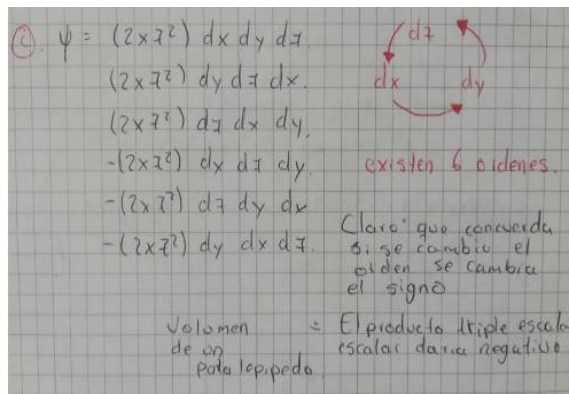 c. ψ = (2xz²) dx dy dz
(2xz²) dy dz dx.
(2xz²) dz dx dy.
-(2xz²) dx dz dy.
-(2xz²) dz dy dx
-(2xz²) dy dx dz.
dz
dx dy
existen 6 ordenes.
Claro que concuerda
si se cambia el
orden se cambia
el signo
Volumen = El producto triple escala
de un escalar daria negativo
paralepipedo.